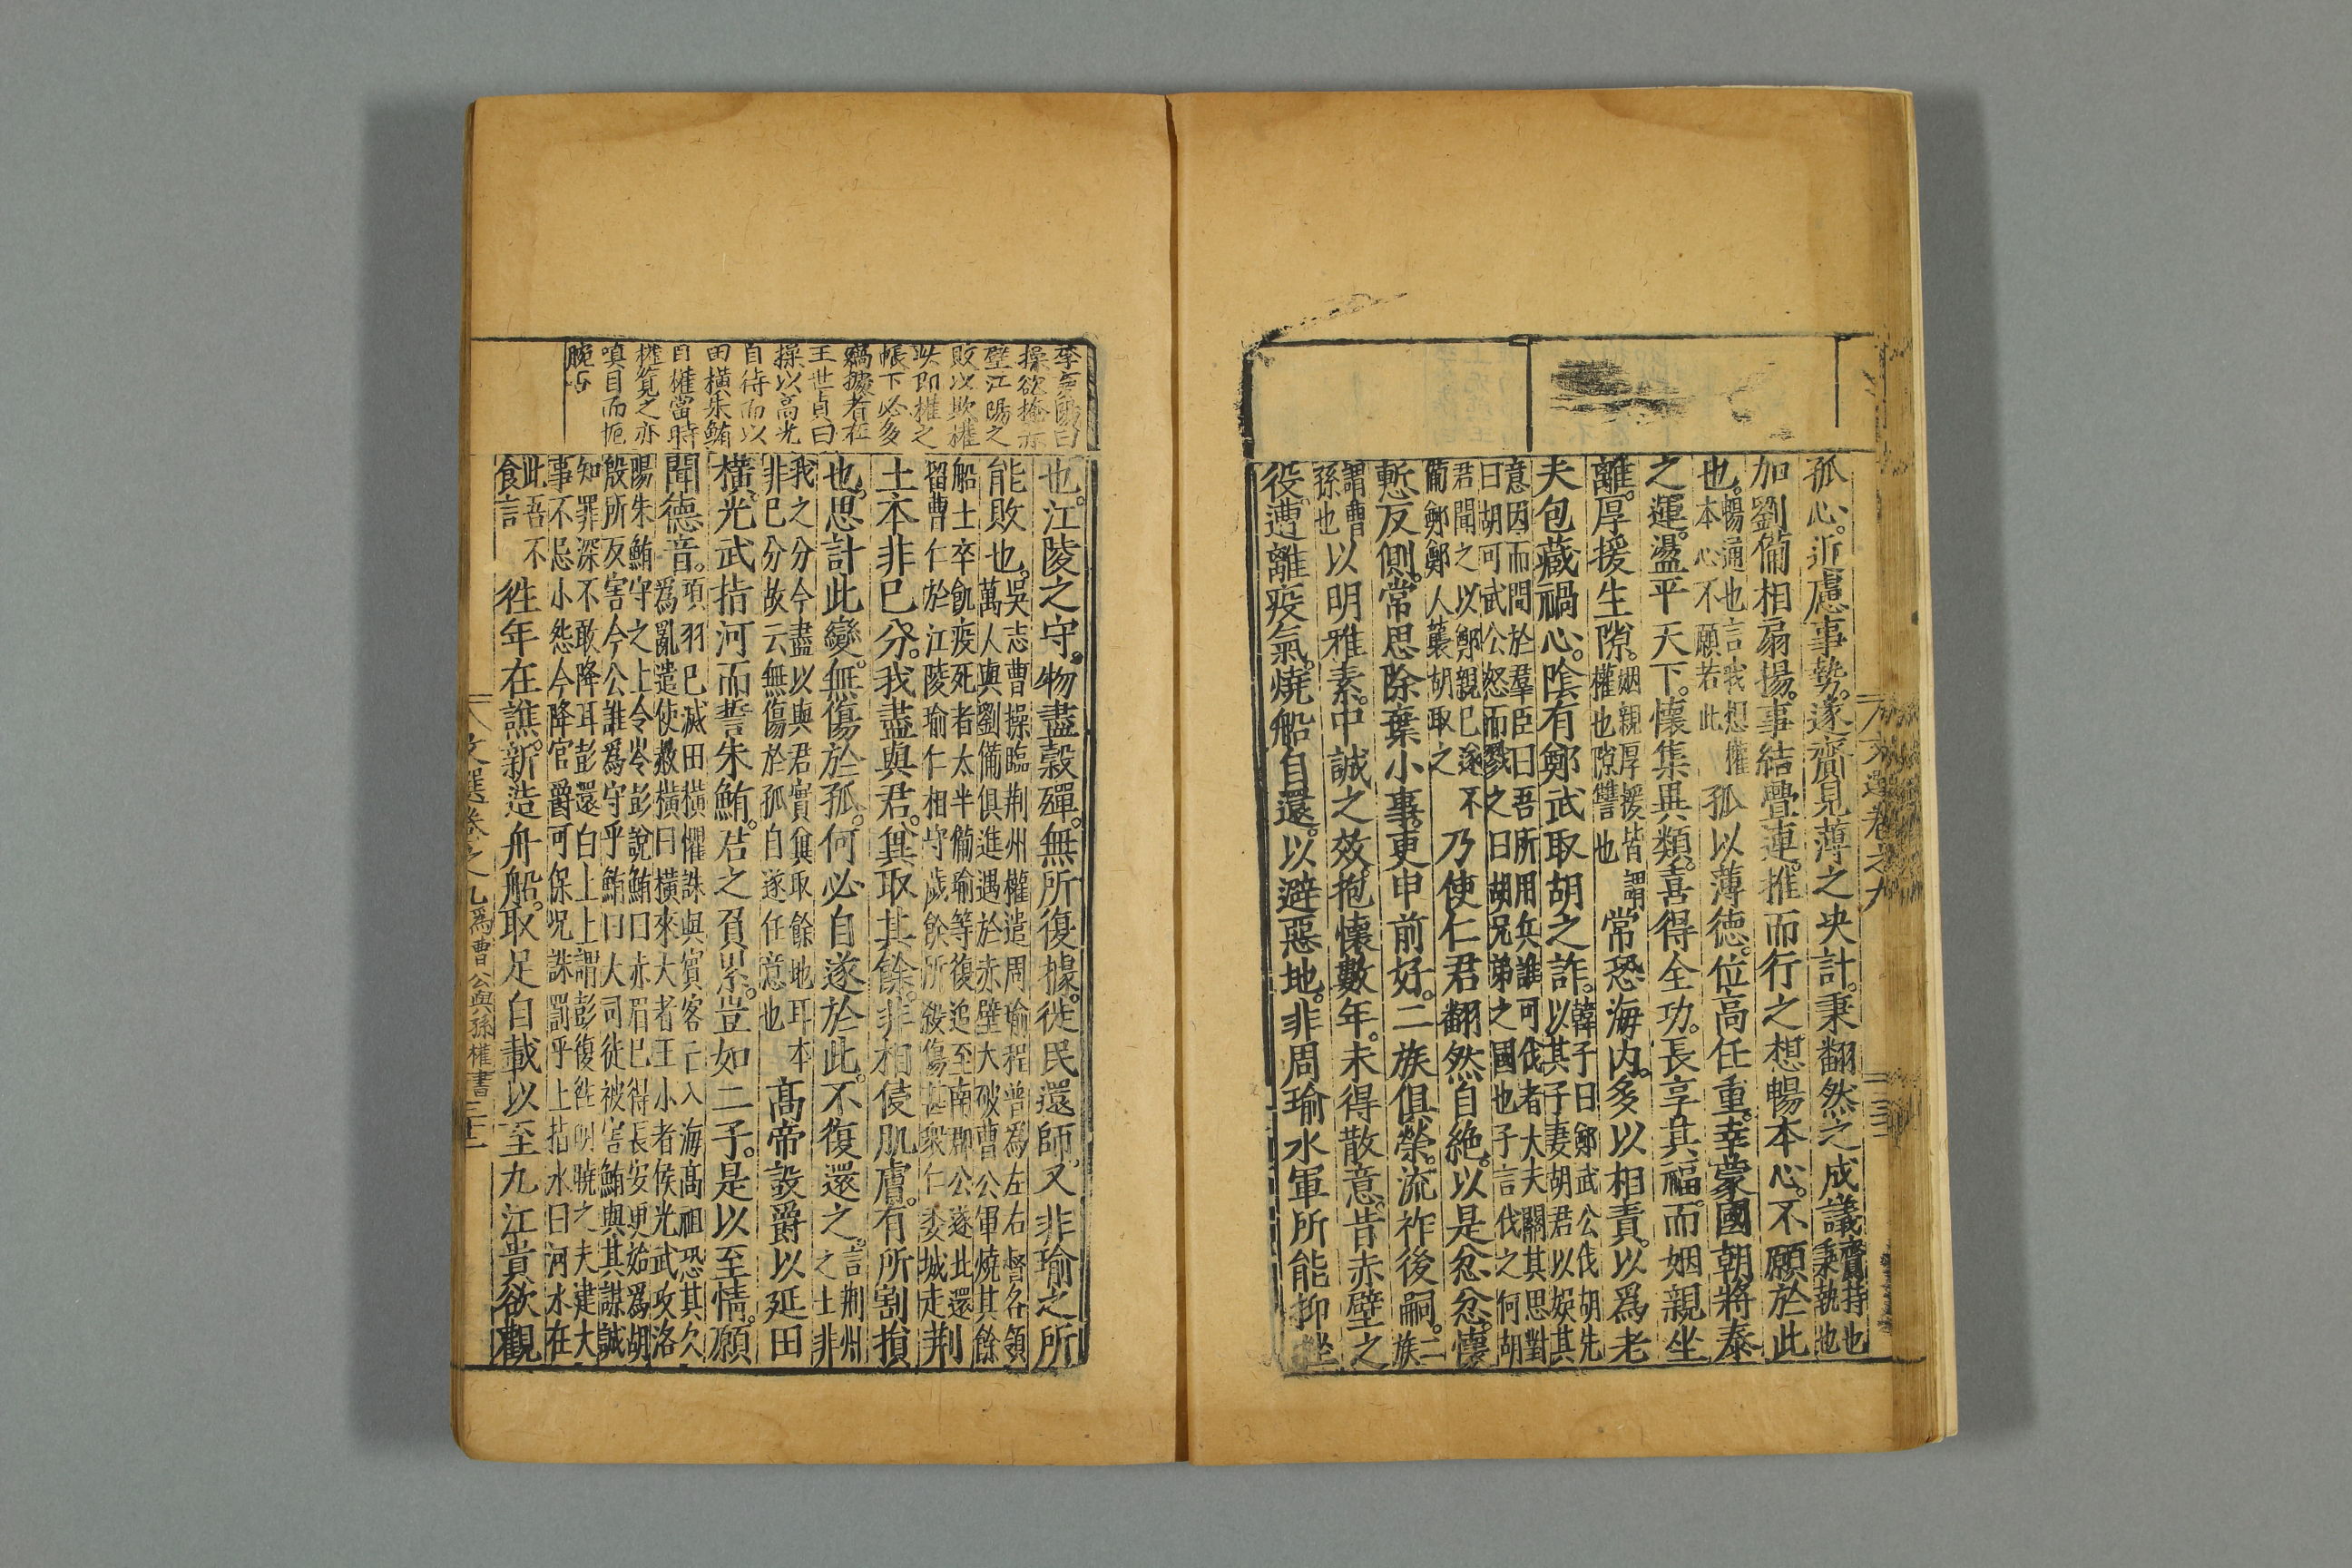 孤心。近慮事勢。遂齎見薄之決計。秉翻然之成議齎持也秉執也
加劉備相扇揚。事結釁連。推而行之想暢本心。不願於此
也。暢通也言我想權本心不願若此孤以薄德。位高任重。幸蒙國朝將泰
之運。盪平天下。懷集異類。喜得全功。長享其福。而姻親坐
離。厚援生隙。姻親厚援皆謂權也隙讐也常恐海内。多以相責。以爲老
夫包藏禍心。陰有鄭武取胡之詐。韓子曰鄭武公伐胡先以其子妻胡君以娱其
意因而問於羣臣曰吾所用兵誰可伐者大夫關其思對曰胡可武公怒而戮之曰胡兄弟之國也子言伐之何胡
君聞之以鄭親已遂不備鄭鄭人襲胡取之乃使仁君翻然自絶。以是忿忿。懷
慙反側。常思除棄小事。更申前好。二族俱榮。流祚後嗣。二族
謂曹孫也以明雅素。中誠之效。抱懷數年。未得散意。昔赤壁之
役。遭離疫氣。燒船自還。以避惡地。非周瑜水軍所能抑坐
文選卷之九
也。江陵之守。物盡穀殫。無所復據。徙民還師。又非瑜之所
能敗也。吳志曹操臨荆州權遣周瑜程普爲左右督各領萬人與劉備俱進遇於赤壁大破曹公軍燒其餘
船士卒飢疫死者太半備瑜等復追至南郡公遂北還留曹仁於江陵瑜仁相守歲餘所殺傷甚衆仁委城走荆
土本非已分。我盡與君。冀取其餘。非相侵肌膚。有所割損
也。思計此變。無傷於孤。何必自遂於此。不復還之。言荆州之土非
我之分今盡以與君實冀取餘地耳本非已分故云無傷於孤自遂任意也高帝設爵以延田
橫。光武指河而誓朱鮪。君之負累。豈如二子。是以至情。願
聞德音。項羽已滅田橫懼誅與賓客亡入海高祖恐其久爲亂遣使赦橫曰橫來大者王小者侯光武攻洛
陽朱鮪守之上令岑彭說鮪曰赤眉已得長安更始爲胡殷所反害今公誰爲守乎鮪曰大司徒被害鮪與其謀誠
知罪深不敢降耳彭還白上上謂彭復往明曉之夫建大事不忌小怨今降官爵可保况誅罰乎上指水曰河水在
此吾不食言往年在譙。新造舟船。取足自載以至九江貴欲觀
操欲掩赤
壁江陽之
敗以欺權
帳下必多
竊據者在
王世貞曰
操以高光
自待而以
田橫朱鮪
目權當時
權覽之亦
嗔目而扼
腕与
文選卷之九 爲曹公與孫權書